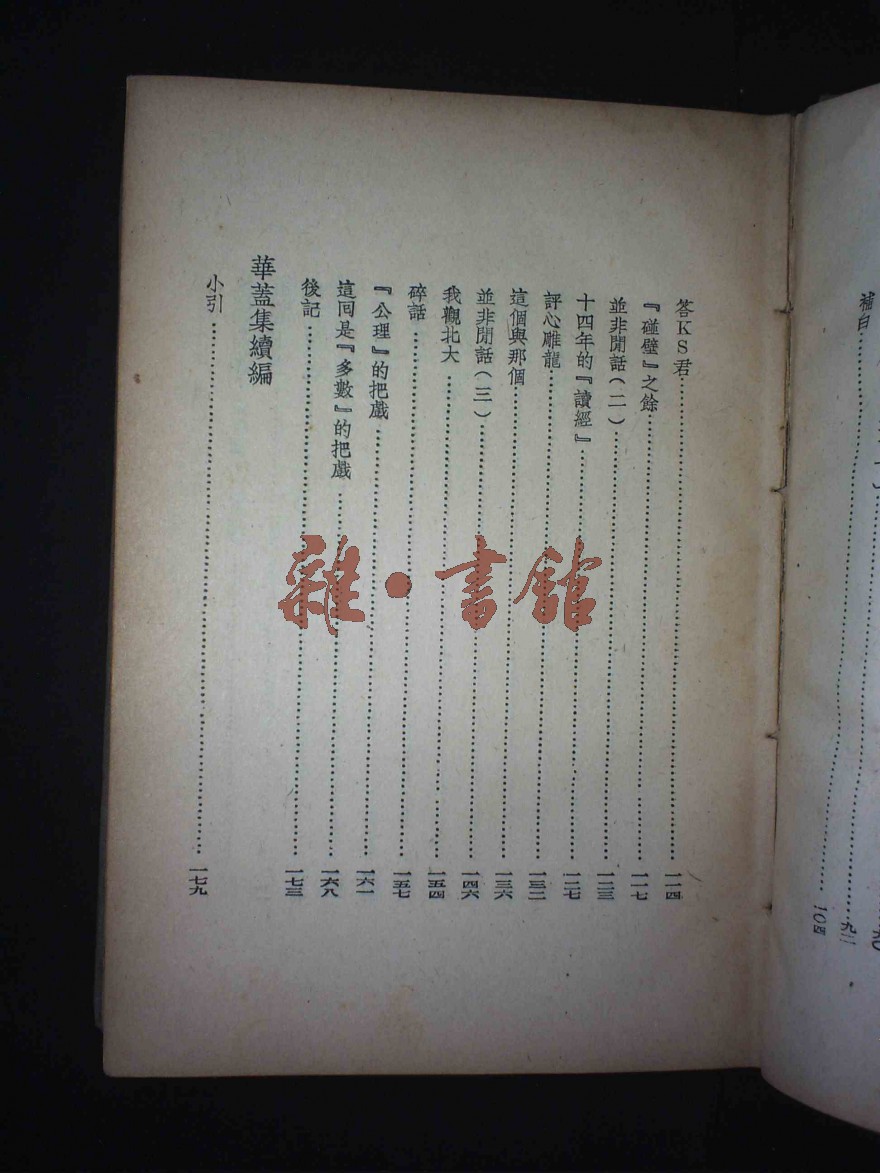 補白……一〇四
九二
答KS君……一一四
『碰壁』之餘……一一七
並非閒話(二)……一二三
十四年的『讀經』……一二七
評心雕龍……一三二
這個與那個……一三六
並非閒話(三)……一四六
我觀北大……一五四
碎話……一五七
『公理』的把戲……一六一
這回是『多數』的把戲……一六八
後記……一七三
華蓋集續編
小引……一七九
雜·書館